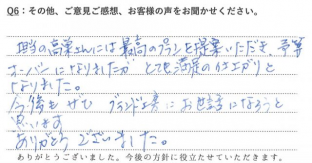 Q6：その他、ご意見ご感想、お客様の声をお聞かせください。
担当の高栄さんには最高のプランを提案いただき、予算
オーバーになりましたが とても満足の仕上がりと
なりました。
今後もぜひ グランド工房にお世話になろうと
思います
ありがとうございました。
ありがとうございました。今後の方針に役立たせていただきます。